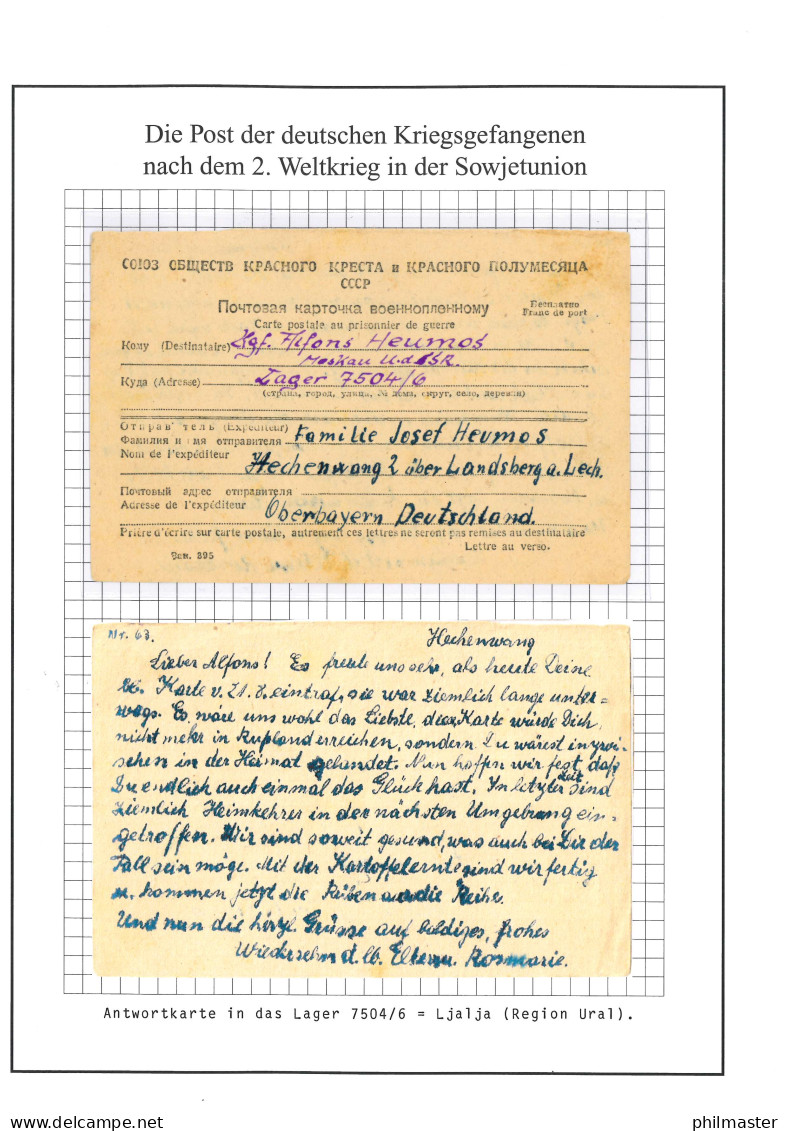 Die Post der deutschen Kriegsgefangenen
nach dem 2. Weltkrieg in der Sowjetunion
СОЮЗ ОБЩЕСТВ КРАСНОГО КРЕСТА и КРАСНОГО ПОЛУМЕСЯЦА
СССР
Почтовая карточка военнопленному
Бесплатно
Carte postale au prisonnier de guerre
Franc de port
Кому (Destinataire) Kgf. Alfons Heumos
Moskau U.d.S.S.R.
Куда (Adresse) Lager 7504/6
(страна, город, улица, № дома, округ, село, деревня)
Отправ тель (Expéditeur)
Фамилия и мя отправителя Familie Josef Heumos
Nom de l'expéditeur
Hechenwang 2 über Landsberg a. Lech.
Почтовый адрес отправителя
Adresse de l'expéditeur Oberbayern Deutschland.
Prière d'écrire sur carte postale, autrement ces lettres ne seront pas remises au destinataire
Lettre au verso.
Зак. 395
Nr. 63. Hechenwang
Lieber Alfons! Es freute uns sehr, als heute Deine
lb. Karte v. 21. eintraf, sie war ziemlich lange unter=
wegs. Es wäre uns wohl das Liebste, diese Karte würde Dich
nicht mehr in Rußland erreichen, sondern Du wärest inzwi-
schen in der Heimat gelandet. Nun hoffen wir fest, daß
Du endlich auch einmal das Glück hast. In letzter Zeit sind
ziemlich Heimkehrer in der nächsten Umgebung ein=
getroffen. Wir sind soweit gesund, was auch bei Dir der
Fall sein möge. Mit der Kartoffelernte sind wir fertig
u. kommen jetzt die Rüben an die Reihe.
Und nun die hrzl. Grüsse auf baldiges, frohes
Wiedersehn d. lb. Eltern u. Rosmarie.
Antwortkarte in das Lager 7504/6 = Ljalja (Region Ural).
www.delcampe.net
philmaster